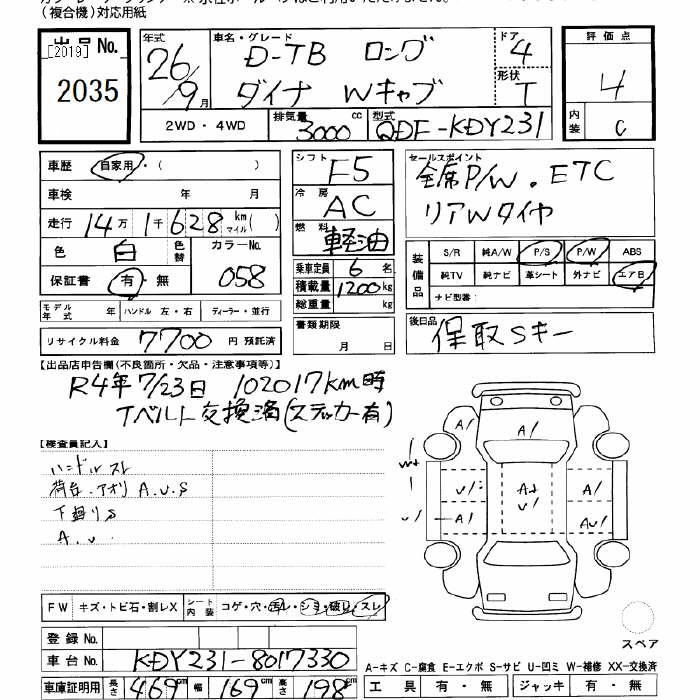 (複合機)対応用紙
出品No.
[2019]
2035
年式 26/9月
車名・グレード D-TB ロング
ダイナ Wキャブ
ドア 4
形状 T
2WD・4WD
排気量 3000cc
型式 QDF-KDY231
評価点 4
内装 C
車歴 自家用・( )
車検 年 月
走行 14万1千628km マイル( )
色 白 色替 カラーNo. 058
保証書 有・無
モデル年式 年 ハンドル 左・右 ディーラー・並行
リサイクル料金 7700円 預託済
シフト F5
冷房 AC
燃料 軽油
乗車定員 6名
積載量 1200kg
総重量 kg
書類期限 月 日
セールスポイント
全席P/W。ETC
リアWタイヤ
装備品
S/R 純A/W P/S P/W ABS
純TV 純ナビ 革シート 外ナビ エアB
ナビ型番:
後日品 保取Sキー
【出品店申告欄(不良箇所・欠品・注意事項等)】
R4年7/23日 102017km時
Tベルト交換済(ステッカー有)
【検査員記入】
ハンドルスレ
荷台.アオリ A.U.S
下廻りS
A.U
A/
A/
A/
A/
FW キズ・トビ石・割レX シート内装 コゲ・穴・汚レ・シミ・破レ・スレ
登録No.
車台No. KDY231-8017330
車庫証明用 長さ 469cm 幅 169cm 高さ 198cm
スペア
A-キズ C-腐食 E-エクボ S-サビ U-凹ミ W-補修 XX-交換済
工具 有・無 ジャッキ 有・無